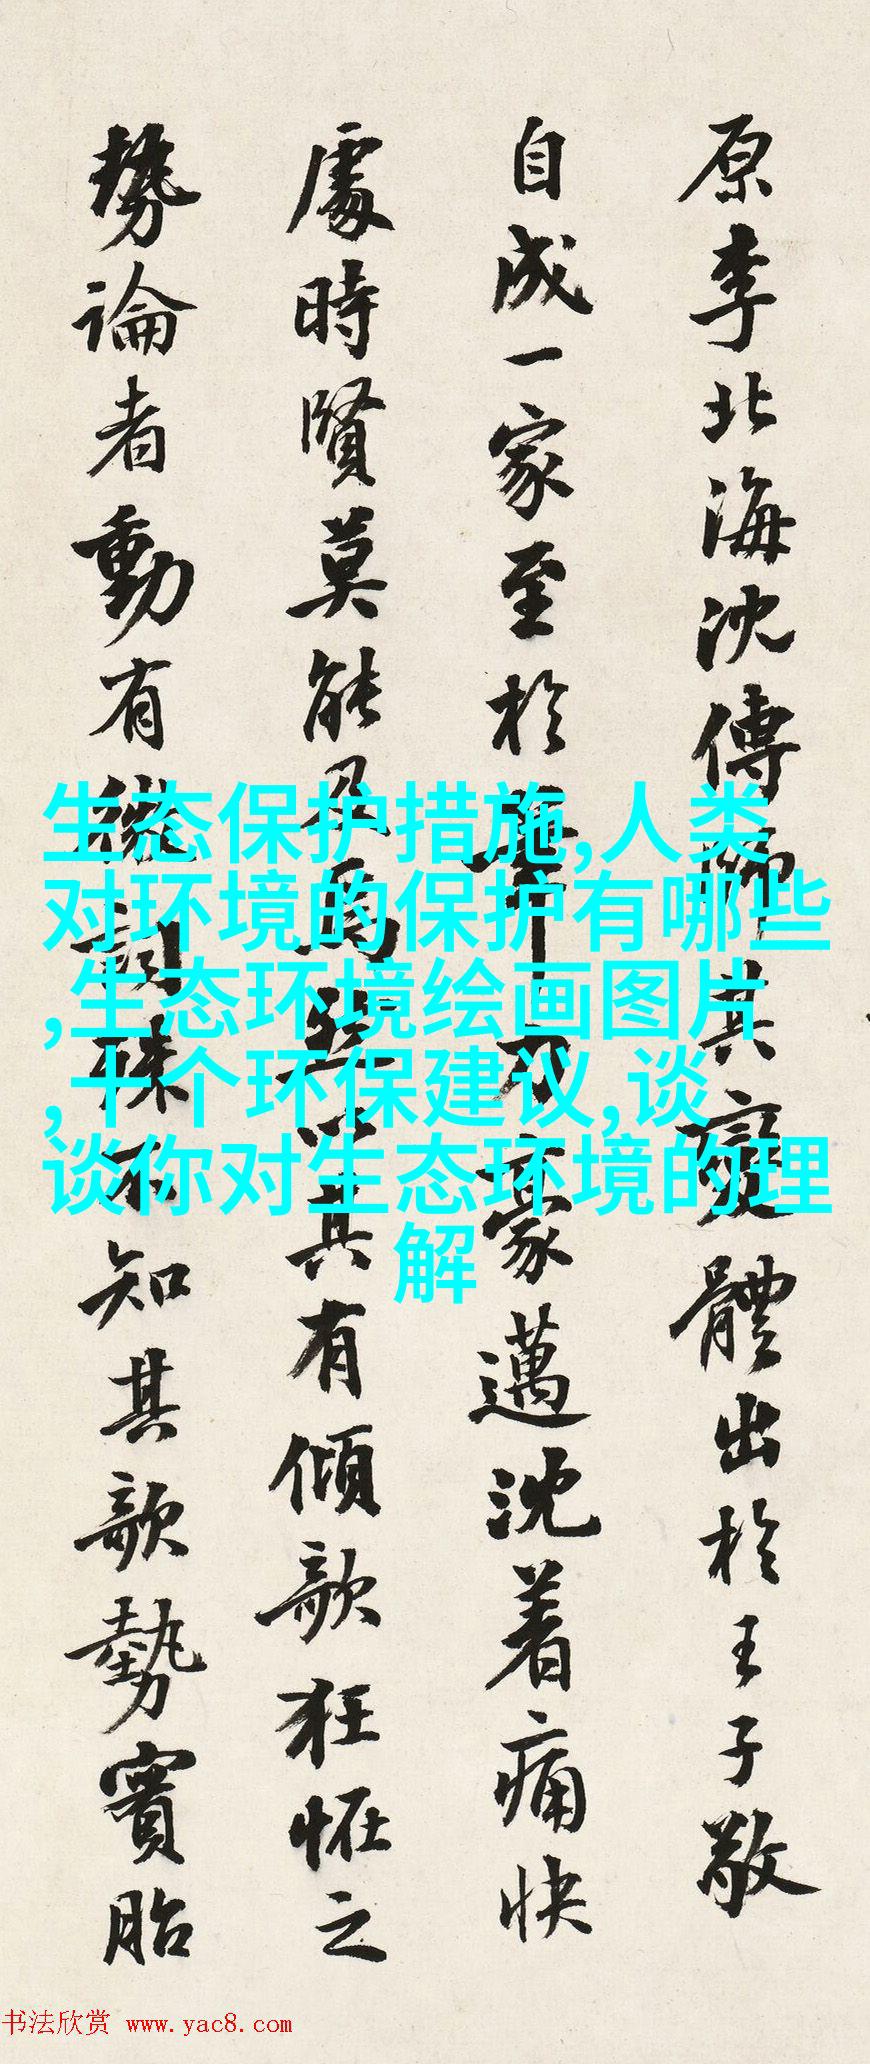 原李北海沈傳師其變體出於王子敬
自成一家至於乃豪邁沈着痛快
處時賢莫能及爲然以其有傾欹狂怪之
勢論者動有微詞殊不知其欹勢實胎
生态保护措施,人类
对环境的保护有哪些
,生态环境绘画图片
,十个环保建议,谈
谈你对生态环境的理
解
书法欣赏 www.yac8.com